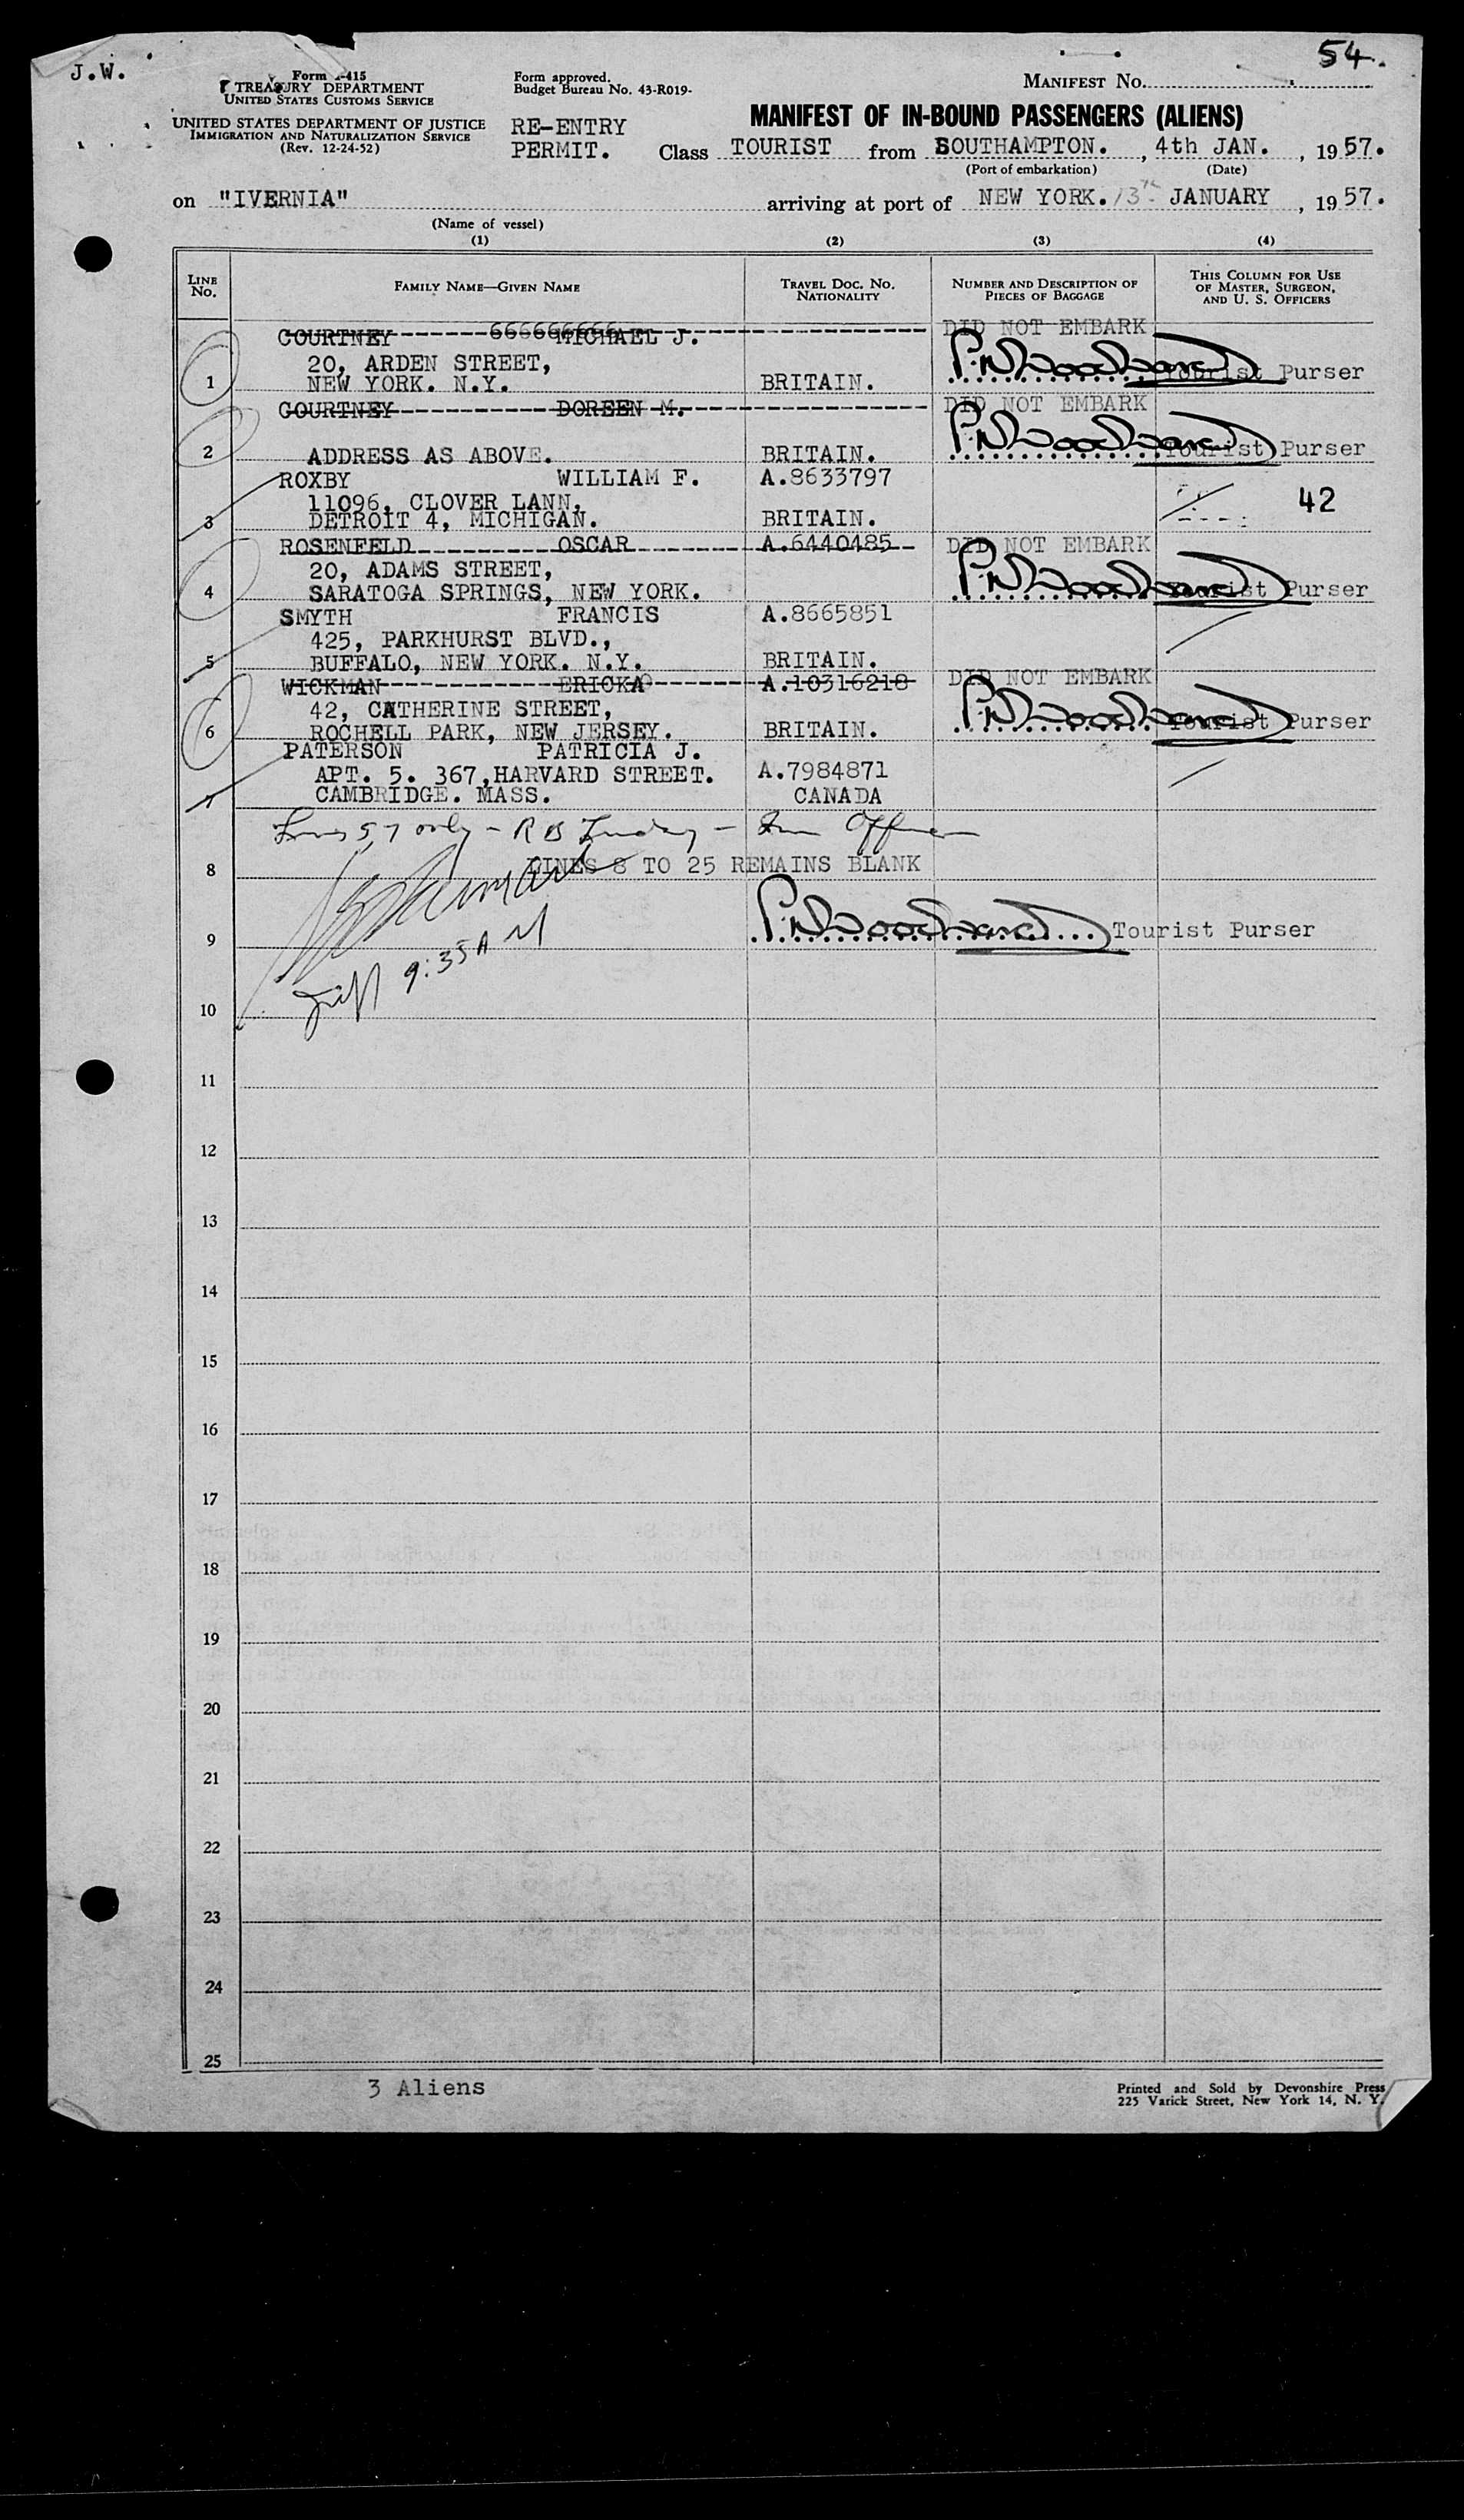 54.
J.W.
Form I-415
TREASURY DEPARTMENT
UNITED STATES CUSTOMS SERVICE
UNITED STATES DEPARTMENT OF JUSTICE
IMMIGRATION AND NATURALIZATION SERVICE
(Rev. 12-24-52)
Form approved.
Budget Bureau No. 43-R019-
RE-ENTRY
PERMIT.
MANIFEST NO.
MANIFEST OF IN-BOUND PASSENGERS (ALIENS)
Class TOURIST from SOUTHAMPTON. , 4th JAN. , 1957.
(Port of embarkation) (Date)
on "IVERNIA" arriving at port of NEW YORK. 13th JANUARY , 1957.
(Name of vessel)
(1) (2) (3) (4)
LINE NO. FAMILY NAME—GIVEN NAME TRAVEL DOC. NO. NATIONALITY NUMBER AND DESCRIPTION OF PIECES OF BAGGAGE THIS COLUMN FOR USE OF MASTER, SURGEON, AND U. S. OFFICERS
COURTNEY MICHAEL J. DID NOT EMBARK
20, ARDEN STREET,
1 NEW YORK. N.Y. BRITAIN. Tourist Purser
COURTNEY DOREEN M. DID NOT EMBARK
2 ADDRESS AS ABOVE. BRITAIN. Tourist Purser
ROXBY WILLIAM F. A.8633797
11096, CLOVER LANN, 42
3 DETROIT 4, MICHIGAN. BRITAIN.
ROSENFELD OSCAR A.6440485 DID NOT EMBARK
20, ADAMS STREET,
4 SARATOGA SPRINGS, NEW YORK. Tourist Purser
SMYTH FRANCIS A.8665851
425, PARKHURST BLVD.,
5 BUFFALO, NEW YORK. N.Y. BRITAIN.
WICKMAN ERICKA A.10316218 DID NOT EMBARK
42, CATHERINE STREET,
6 ROCHELL PARK, NEW JERSEY. BRITAIN. Tourist Purser
PATERSON PATRICIA J.
APT. 5. 367,HARVARD STREET. A.7984871
7 CAMBRIDGE. MASS. CANADA
8 LINES 8 TO 25 REMAINS BLANK
9 Tourist Purser
9:35 AM
10
11
12
13
14
15
16
17
18
19
20
21
22
23
24
25
3 Aliens
Printed and Sold by Devonshire Press
225 Varick Street, New York 14, N. Y.